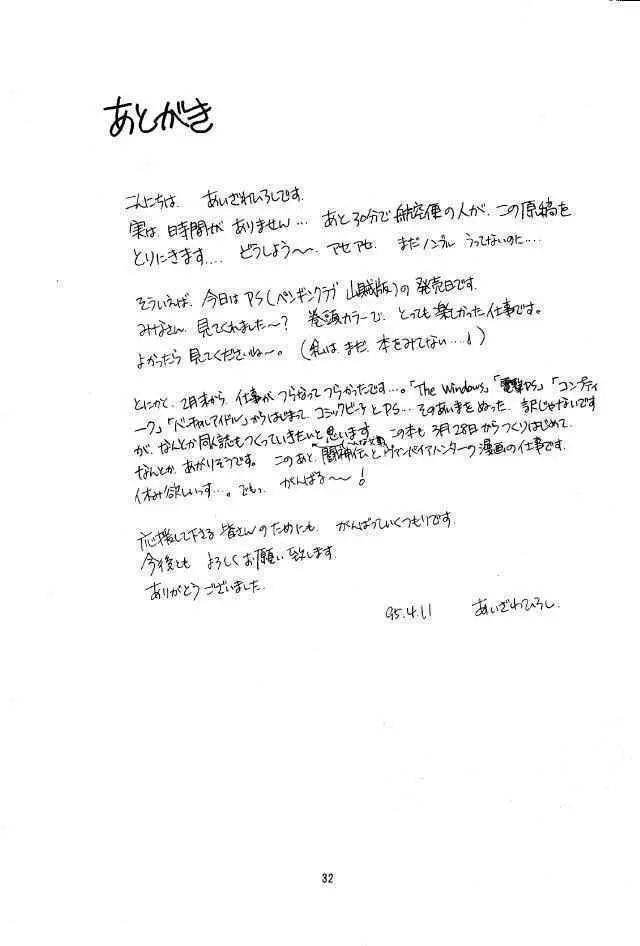 あとがき
こんにちは あいざわひろしです。
実は 時間が ありません… あと30分で 航空便の人が、この原稿を
とりにきます…. どうしよう〜、アセアセ、まだノンブル うってないのに…
そういえば、今日は PS(ペンギンクラブ 山賊版)の 発売日です。
みなさん、見てくれました〜? 巻頭カラーで、とっても 楽しかった仕事です。
よかったら 見てくださいね〜。(私は、まだ、本をみてない….!)
とにかく、2月末から、仕事が つらなって つらかったです…。「The Windows」「電撃PS」「コンプティ
ーク」「バーチャルアイドル」からはじまって コミックピー子とPS… そのあいまをぬった 訳じゃないです
が、なんとか 同人誌もつくっていきたいと 思います この本も 3月28日からつくりはじめて、
なんとか、あがりそうです。 このあと、闘神伝と ヴァンパイアハンターの漫画の仕事です。
休み欲しいっス…。でもっ がんばる〜!
応援して下さる 皆さんのためにも がんばっていくつもりです
今後とも よろしくお願い致します
ありがとうございました
95.4.11 あいざわひろし.
32